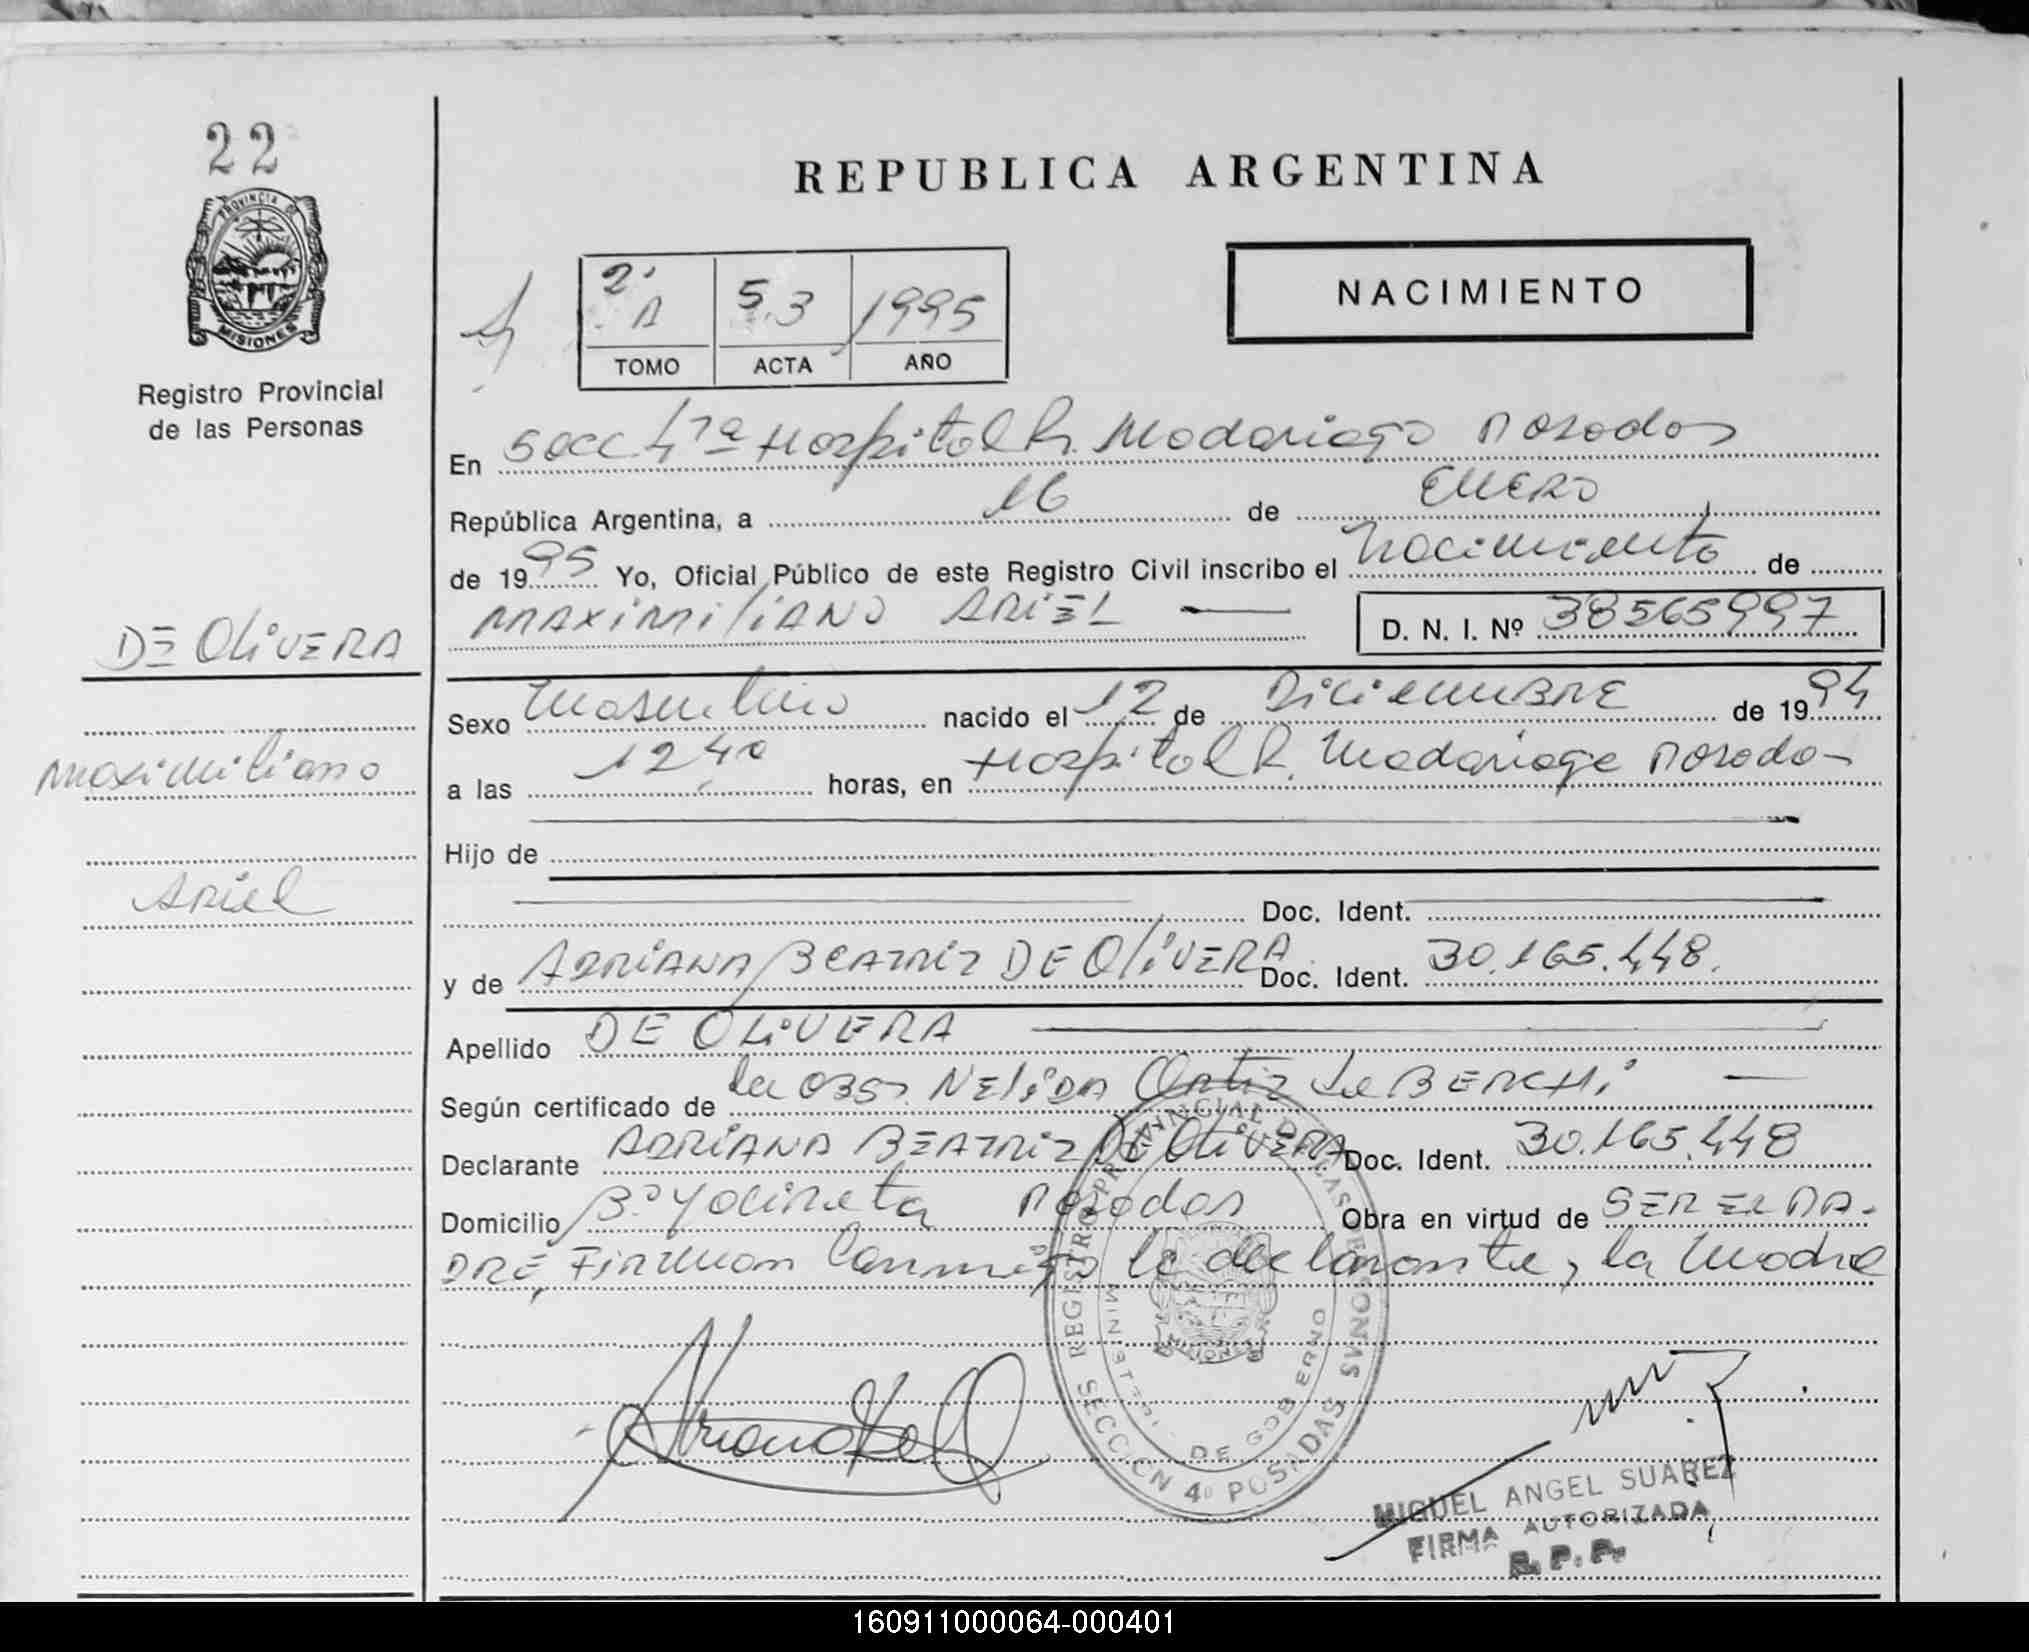 22
PROVINCIA DE
MISIONES
Registro Provincial
de las Personas
REPUBLICA ARGENTINA
NACIMIENTO
2º A 53 1995
TOMO ACTA AÑO
En Secc 4ta Hospital R. Madariaga Posadas
República Argentina, a 16 de ENERO
de 1995 Yo, Oficial Público de este Registro Civil inscribo el Nacimiento de
MAXIMILIANO ARIEL D. N. I. Nº 38565997
DE OLIVERA
Maximiliano
Ariel
Sexo Masculino nacido el 12 de DICIEMBRE de 1994
a las 12 40 horas, en Hospital R. Madariaga Posadas
Hijo de
Doc. Ident.
y de ADRIANA BEATRIZ DE OLIVERA Doc. Ident. 30.165.448.
Apellido DE OLIVERA
Según certificado de la OBST NELIDA Ortiz de BERCHI
Declarante ADRIANA BEATRIZ DE OLIVERA Doc. Ident. 30.165.448
Domicilio Bº Yacireta Posadas Obra en virtud de SER EL PA-
DRE, FIRMAN Conmigo la declarante, la Madre
REGISTRO PROVINCIAL DE LAS PERSONAS
MINISTERIO DE GOBIERNO
SECCION 4º POSADAS
MIGUEL ANGEL SUAREZ
FIRMA AUTORIZADA
R. P. P.
160911000064-000401